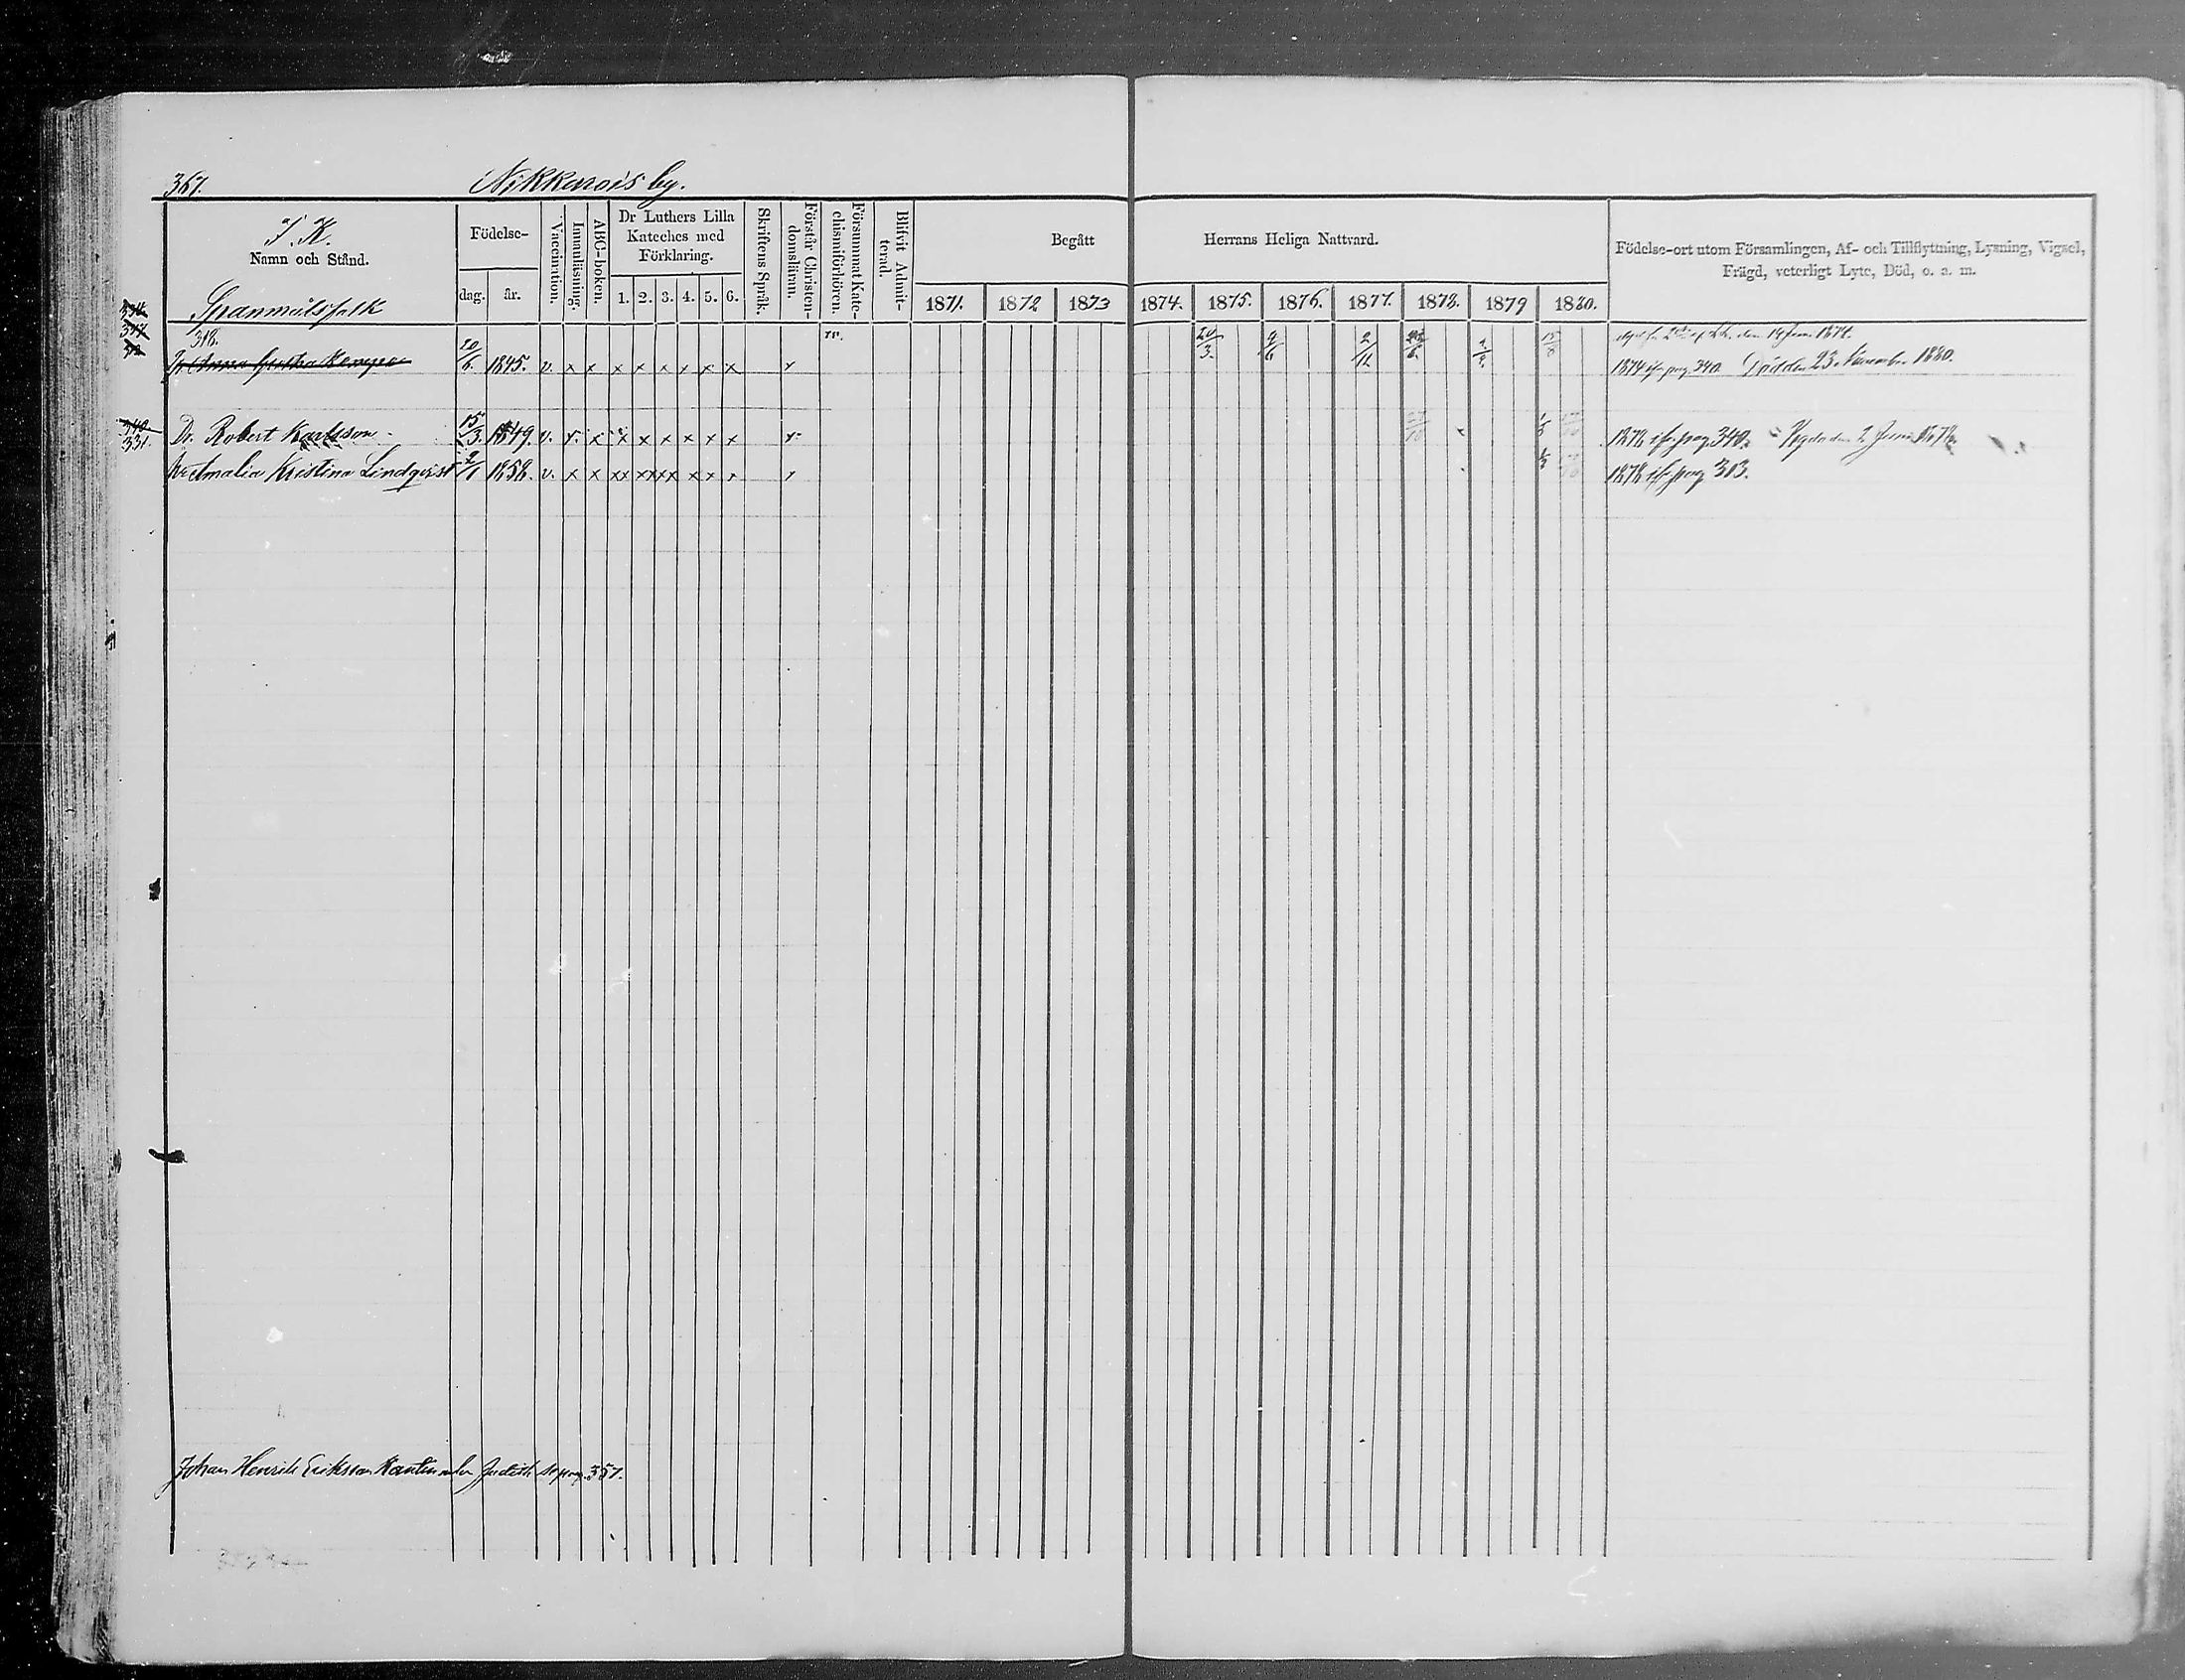 367. Nikkerois by.
I. K.
Namn och Stånd.
Födelse-
dag. år.
Vaccination.
Innanläsning.
ABC-boken.
Dr Luthers Lilla
Kateches med
Förklaring.
1. 2. 3. 4. 5. 6.
Skriftens Språk.
Förstår Christen-
domsläran.
Försummat Kate-
chismiförhören.
Blifvit Admit-
terad.
Begått Herrans Heliga Nattvard.
1871. 1872 1873 1874. 1875. 1876. 1877. 1878. 1879 1880.
Födelse-ort utom Församlingen, Af- och Tillflyttning, Lysning, Vigsel,
Frägd, veterligt Lyte, Död, o. a. m.
Spanmålsfolk
318. den 14 Juni 1874.
Anna 20/6. 1845. v. x x x x x x x x x 20/3. 9/6 2/11 1874 ifr. pag. 340. Död den 23 November 1880.
340
331. Dr. Robert Karlsson 15/3. 1849. v. x x x x x x x x 1878 ifr. pag 340. Vigda den 2 Juni 1878.
Amalia Kristina Lindqvist 2/1 1858. v. x x xx xx xx x x x 1878 ifr. pag 303.
Johan Henrik Eriksson Judith se pag. 357.